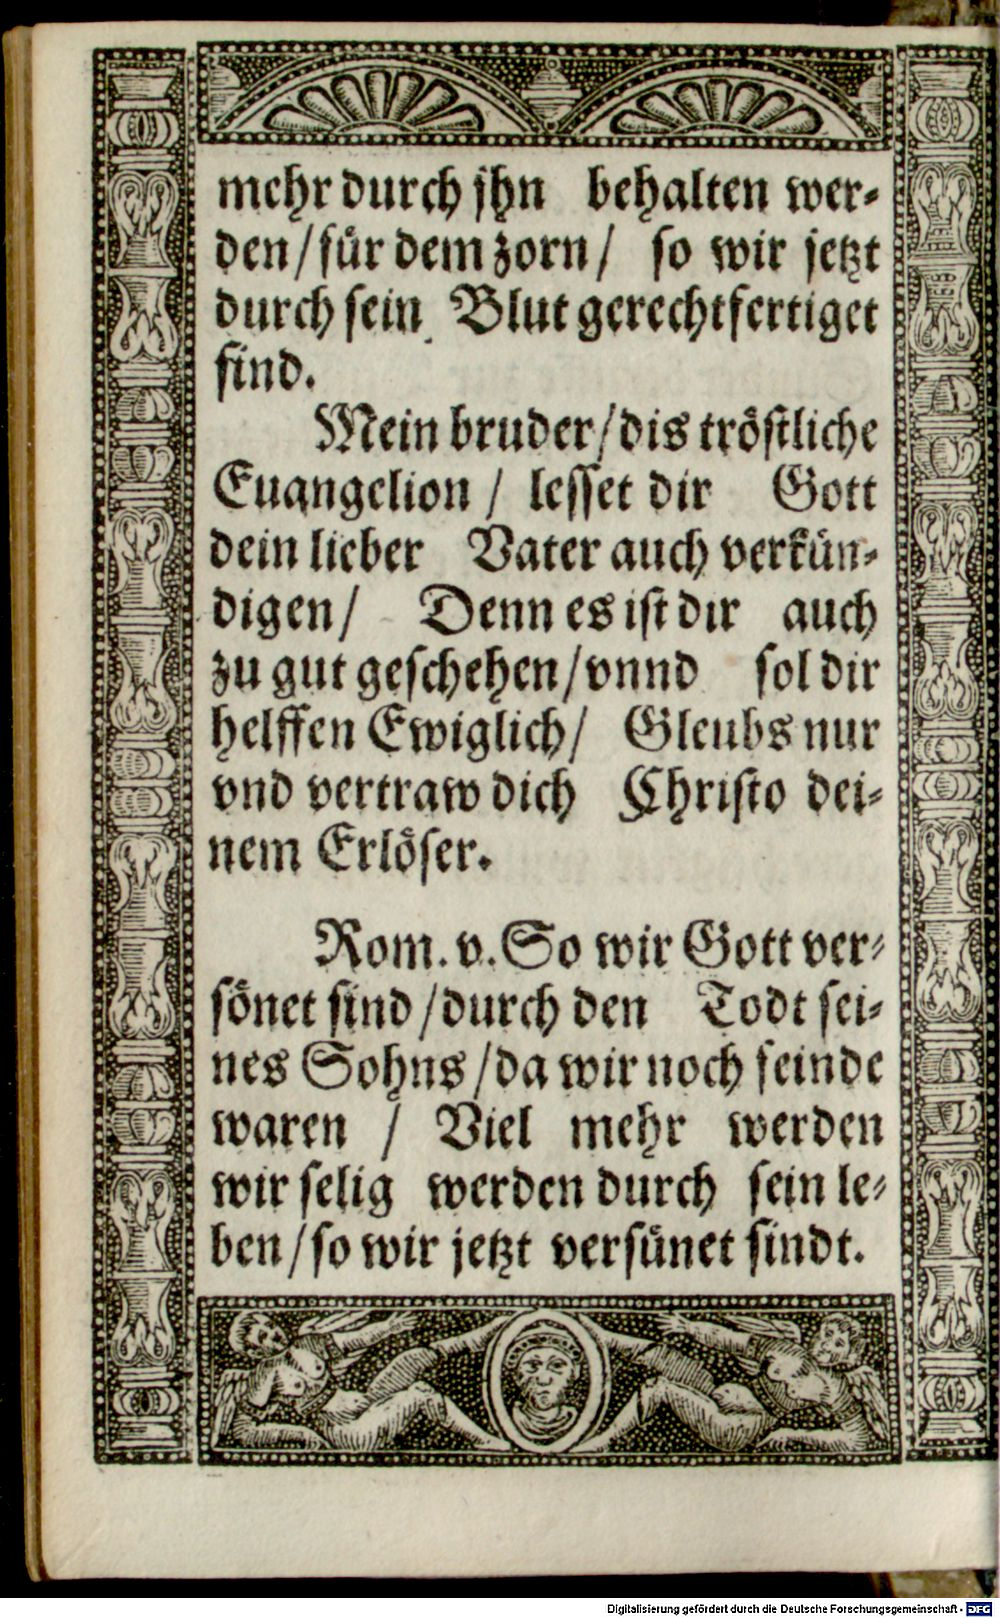 mehr durch jhn behalten wer-
den/für dem zorn/ so wir jetzt
durch sein Blut gerechtfertiget
sind.
Mein bruder/dis tröstliche
Euangelion / lesset dir Gott
dein lieber Vater auch verkün-
digen/ Denn es ist dir auch
zu gut geschehen/vnnd sol dir
helffen Ewiglich/ Gleubs nur
vnd vertraw dich Christo dei-
nem Erlöser.
Rom. v. So wir Gott ver-
sönet sind/durch den Todt sei-
nes Sohns/da wir noch feinde
waren / Viel mehr werden
wir selig werden durch sein le-
ben/so wir jetzt versünet sindt.
Digitalisierung gefördert durch die Deutsche Forschungsgemeinschaft - DFG